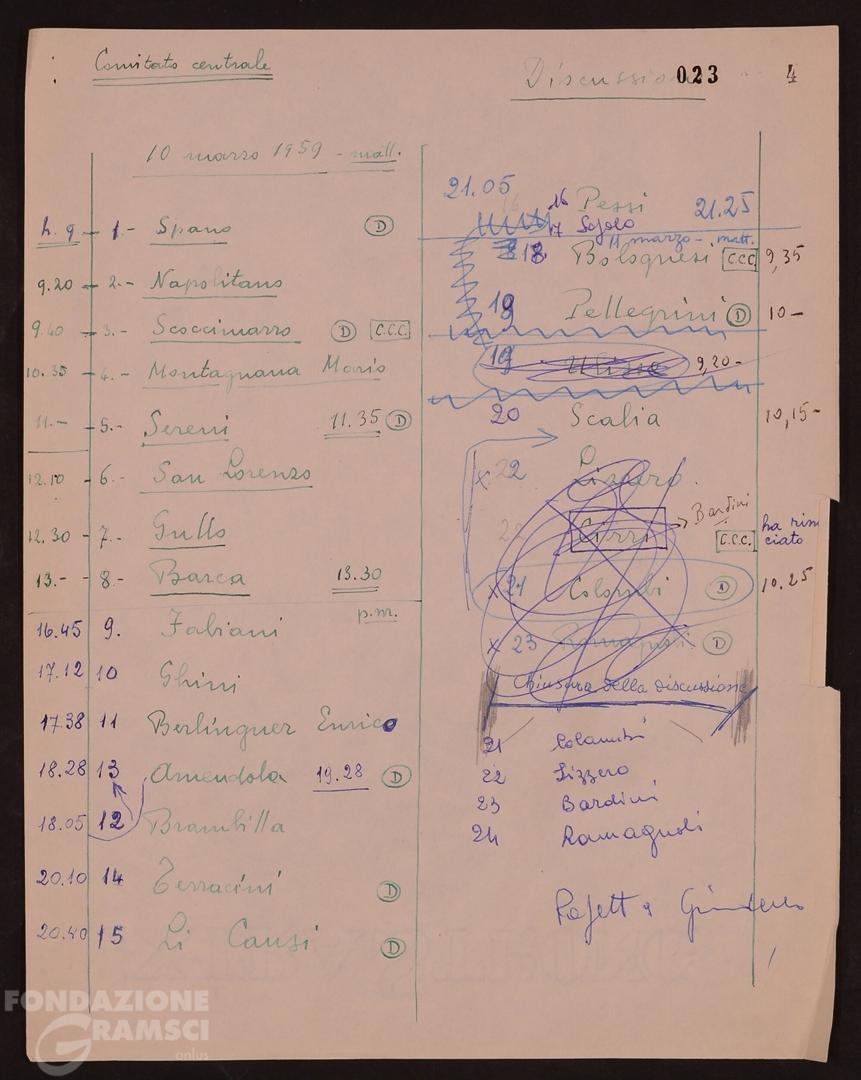 Comitato centrale
Discussione 023 4
10 marzo 1959 - matt.
h. 9 - 1.- Spano D
9.20 - 2.- Napolitano
9.40 - 3.- Scoccimarro D C.C.C.
10.35 - 4.- Montagnana Mario
11.- - 5.- Sereni 11.35 D
12.10 - 6.- San Lorenzo
12.30 - 7.- Gullo
13.- - 8.- Barca 13.30
p.m.
16.45 9. Fabiani
17.12 10 Ghini
17.38 11 Berlinguer Enrico
18.28 13 Amendola 19.28 D
18.05 12 Brambilla
20.10 14 Terracini D
20.40 15 Li Causi D
21.05 16 Pessi 21.25
17
11 marzo - matt.
18 Bolognesi C.C.C. 9,35
19 Pellegrini D 10-
19 Ulisse 9,20-
20 Scalia 10,15-
x 22 Lizzero
22 Cirri Bardini C.C.C. ha rinunciato
x 21 Colombi D 10.25
x 23 Romagnoli D
Chiusura della discussione
21 Colombi
22 Lizzero
23 Bardini
24 Romagnoli
FONDAZIONE
GRAMSCI
onlus